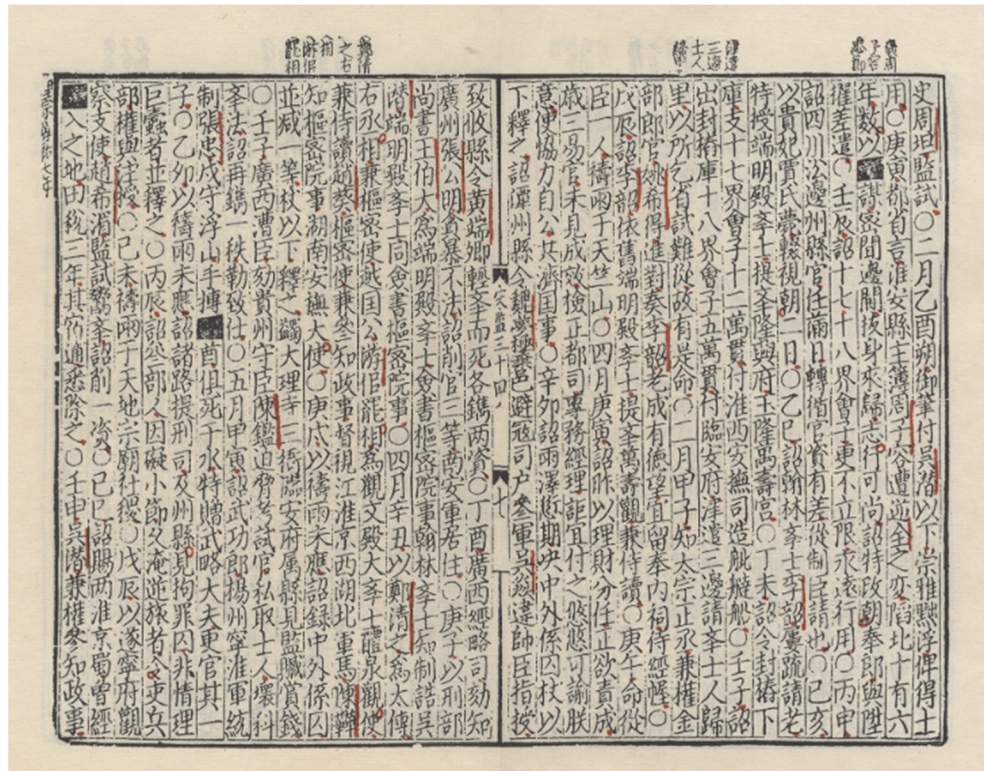 贈周
子容
忠節
津遣
三邊
士人
歸里
鄭清
之右
相
游侣
罷相
史周坦監試○二月乙酉朔御筆付吳潛以下崇雅黜浮俾得士
用○庚寅都省言淮安縣主簿周子容遭逆全之变陷北十有六
年數以諜密聞邊閫拔身來歸志行可尚詔特改朝奉郎與陞
擢差遣○壬辰詔十七十八界會子更不立限永遠行用○丙申
詔四川㳂邊州縣官任滿日轉循官資有差從制臣請也○己亥
以貴妃賈氏薨輟視朝一日○乙巳詔翰林孝士李韶屢疏請老
特授端明殿孝士提孝隆興府玉隆萬壽宮○丁未詔令封樁下
庫支十七界會子十二萬貫付淮西安撫司造船○壬子詔
出封樁庫十八界會子五萬貫付臨安府津遣三邊請孝士人歸
里以所乞省試難從故有是命○三月甲子知太宗正丞兼權金
部郎官姚希得進對奏李韶老成有德望宜留奉内祠侍經幄○
戊辰詔李韶依舊端明殿孝士提孝萬壽觀兼侍讀○庚午命從
臣一人禱雨于天竺山○四月庚寅詔昨以理財分任正欲責成
歲三易官未見成效檢正都司專務經理詎宜付之悠悠可諭朕
意使協力自公共濟国事○辛卯詔雨澤愆期決中外係囚杖以
下釋之詔潭州縣令魏夢極棄邑避寇司户參軍吳燧違帥臣指授
宋鑑三十四
七
致攸縣令黄端卿輕孝而死各鐫两資○丁酉廣西經略司劾知
廣州張公明貪暴不法詔削官三等南安軍居住○庚子以刑部
尚書王伯大爲端明殿孝士僉書樞密院事翰林孝士知制誥吳
潛端明殿孝士同僉書樞密院事○四月辛丑以鄭清之爲太傅
右丞相兼樞密使越国公游侣罷相爲觀文殿大孝士醴泉觀使
兼侍讀趙葵樞密使兼參知政事督視江淮京西湖北軍馬陳韡
知樞密院事湖南安撫大使○庚戌以禱雨未應詔録中外係囚
並减一等杖以下釋之蠲大理寺三衙臨安府属縣見監贓賞錢
○壬子廣西漕臣劾貴州守臣陳鑑迫脅考試官私取士人壞科
孝法詔再鐫一秩勒致仕○五月甲寅詔武功郎揚州寧淮軍統
制張忠戍守浮山手搏酋俱死于水特贈武略大夫更官其一
子○乙卯以禱雨未應詔諸路提刑司及州縣見拘罪囚非情理
巨蠹者並釋之○丙辰詔部人因礙小節久淹逆旅者令吏兵
部權與注授○己未禱雨于天地宗廟社稷○戊辰以遂寧府觀
察支使趙希監試鬻孝詔削一资○己巳詔賜两淮京蜀曾經
入之地田稅三年其宿逋悉除之○壬申吳潛兼權參知政事